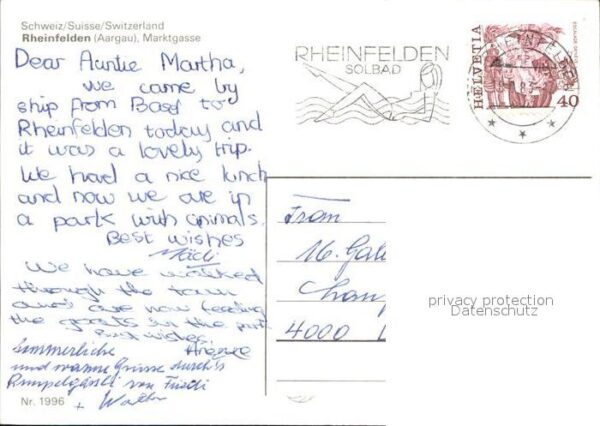 Schweiz/Suisse/Switzerland
Rheinfelden (Aargau), Marktgasse
Dear Auntie Martha,
we came by
ship from Basel to
Rheinfelden today and
it was a lovely trip.
We had a nice lunch
and now we are in
a park with animals.
Best wishes
We have walked
through the town
and are now feeding
the goats in the park
Best wishes
Sommerliche
und warme Grüsse durch's
Rumpelgässli von
+
Nr. 1996
RHEINFELDEN
SOLBAD
HELVETIA
40
Frau
M. Gal
4000
privacy protection
Datenschutz